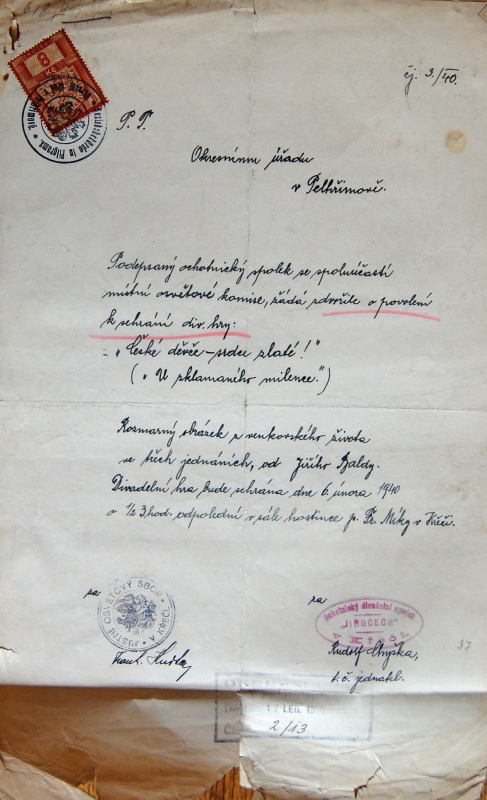 8
čj. 3./40.
P. T.
Okresnímu úřadu
v Pelhřimově.
Podepsaný ochotnický spolek se spoluúčastí
místní osvětové komise, žádá zdvořile o povolení
k sehrání div. hry:
= „České děvče – srdce zlaté!"
(„U zklamaného milence.")
Rozmarný obrázek z venkovského života
ve třech jednáních, od Jiřího Baldy.
Divadelní hra bude sehrána dne 6. února 1940
o ½ 3 hod. odpolední v sále hostince p. Fr. Míky v Křeči.
za
za
MÍSTNÍ OSVĚTOVÝ SBOR * V KŘEČI *
Ochotnický divadelní spolek
"JIHOČECH"
v Křeči
Rudolf
t. č. jednatel.
37
17 LED. 1940
2/13